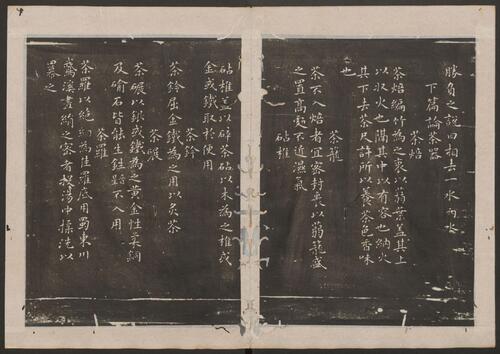 勝負之說曰相去一水兩水
下篇論茶器
茶焙
茶焙編竹為之裹以蒻葉蓋其上
以收火也隔其中以有容也納火
其下去茶尺許所以養茶色香味
也
茶籠
茶不入焙者宜密封裹以蒻籠盛
之置高處不近濕氣
砧椎
砧椎蓋以碎茶砧以木為之椎或
金或鐵取於便用
茶鈐
茶鈐屈金鐵為之用以炙茶
茶碾
茶碾以銀或鐵為之黃金性柔銅
及鍮石皆能生鉎不入用
茶羅
茶羅以絕細為佳羅底用蜀東川
鵞溪畫絹之密者投湯中揉洗以
羃之